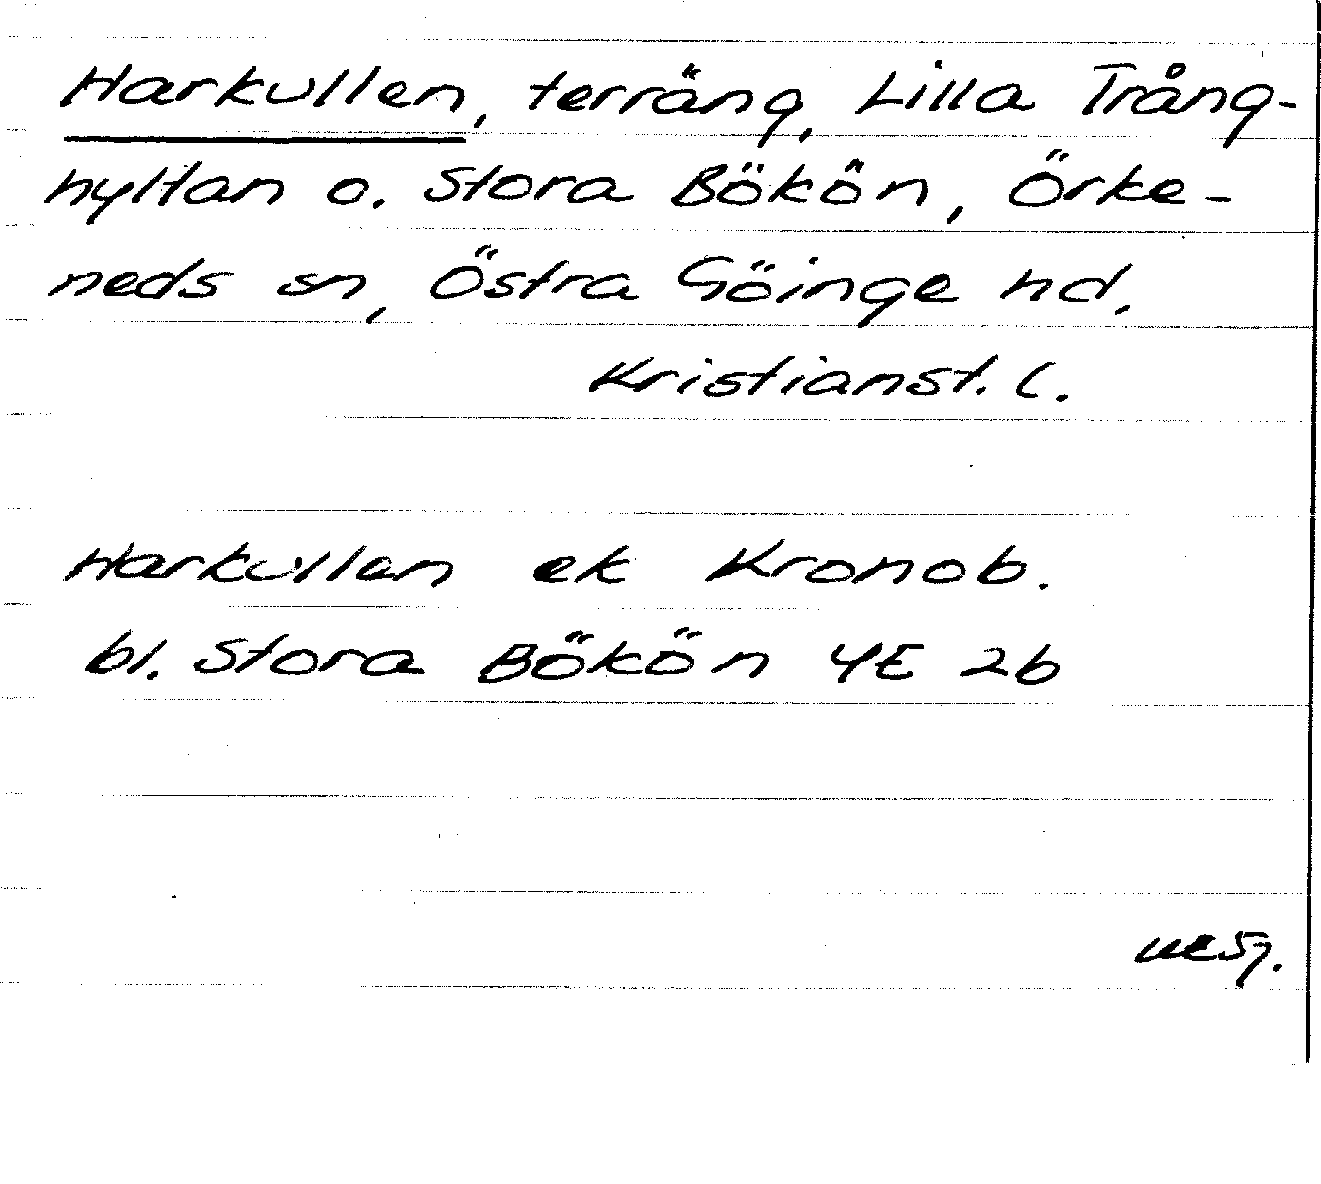 Harkullen, terräng, Lilla Trång-
hyltan o. Stora Bökön, Örke-
neds sn, Östra Göinge hd,
Kristianst. l.
Harkullen ek Kronob.
bl. Stora Bökön 4E 2b